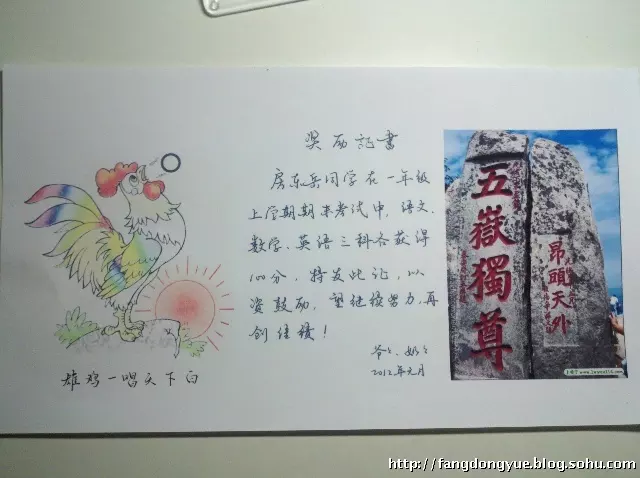 奖励证書
房东岳同学在一年级
上学期期末考试中，语文、
数学、英语三科各获得
100分，特发此证，以
资鼓励，望继续努力，再
创佳绩！
爷々、奶々
2012年元月
雄鸡一唱天下白
五嶽獨尊
昂頭天外
http://fangdongyue.blog.sohu.com